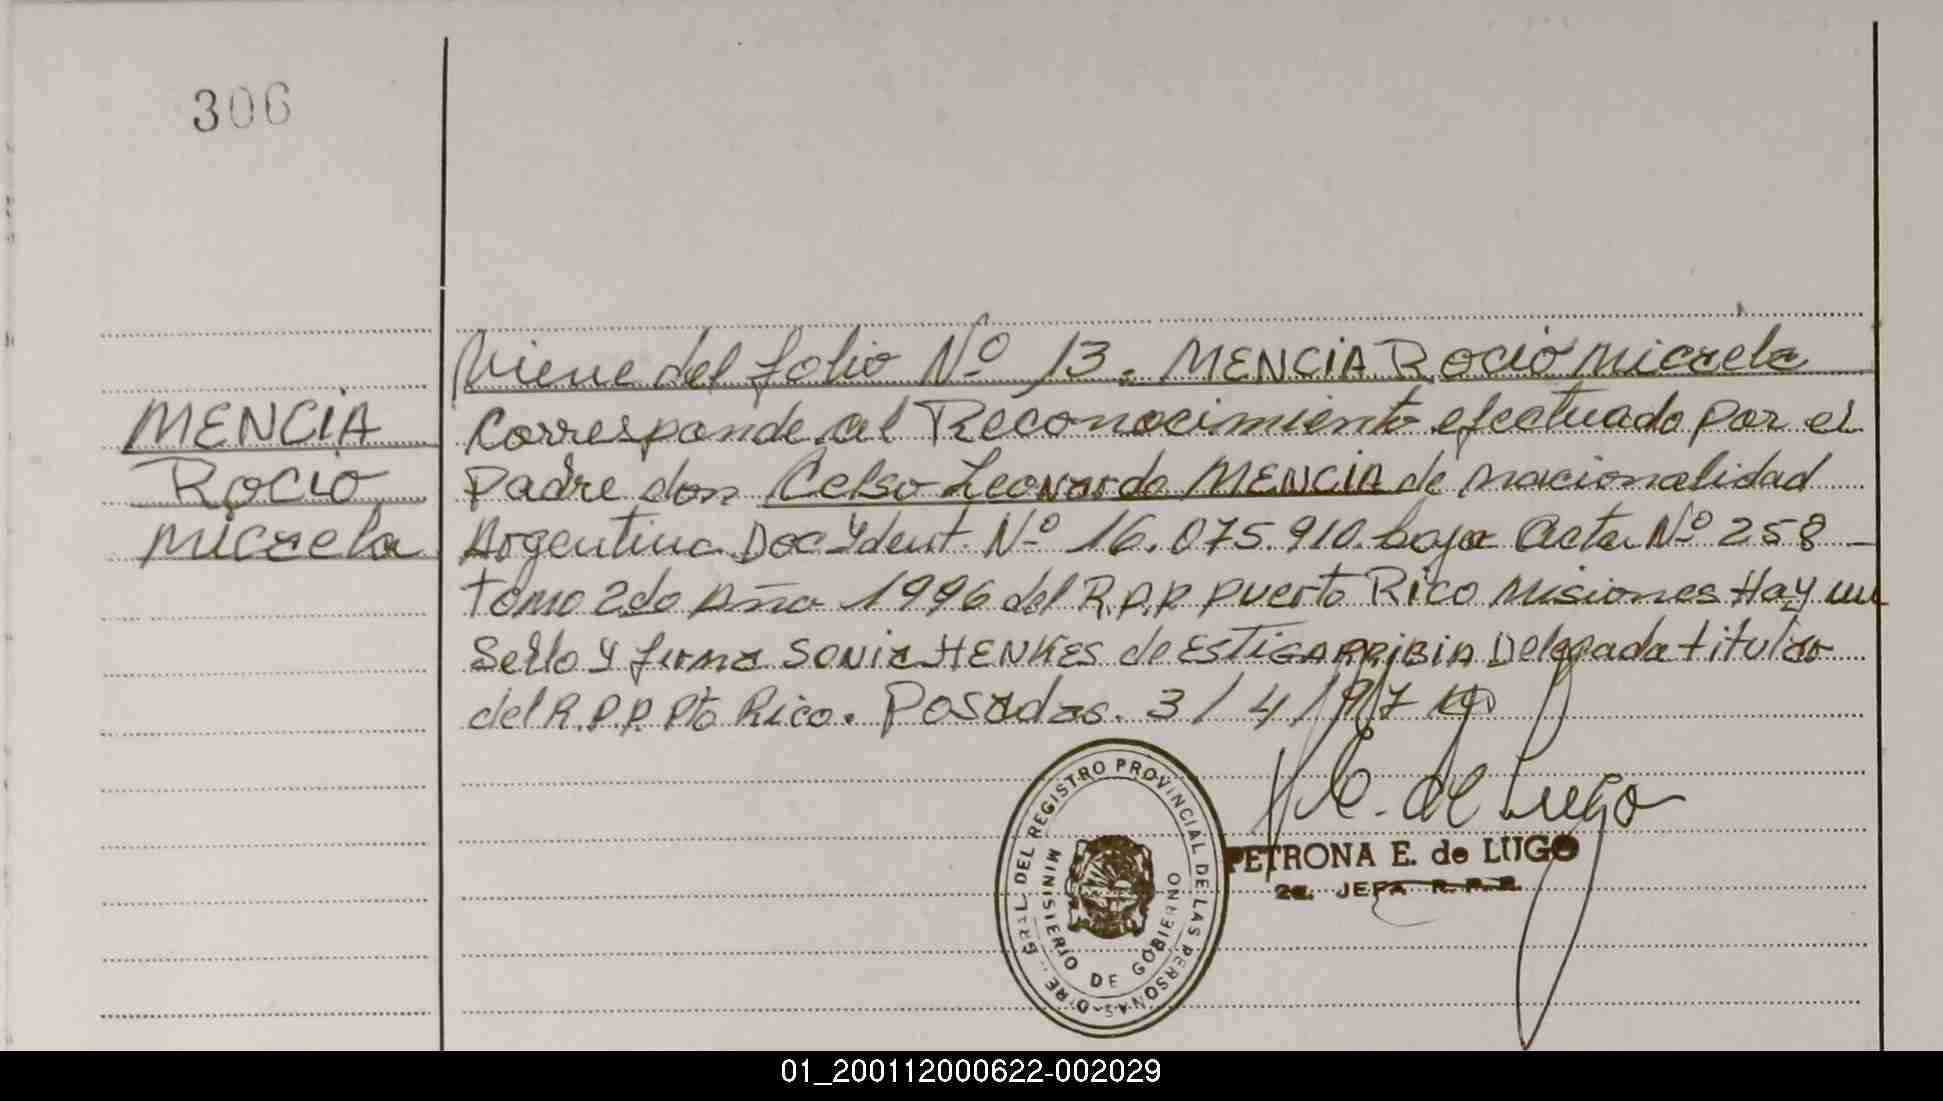 306
MENCIA
Rocio
Micaela
Viene del folio Nº 13. MENCIA Rocio Micaela
Corresponde al Reconocimiento efectuado por el
padre don Celso Leonardo MENCIA de nacionalidad
Argentina Doc Ydent. Nº 16.075.910. bajo Acta Nº 258 -
tomo 2do Año 1996 del R.P.P Puerto Rico Misiones Hay un
Sello y firma SONIA HENKES de ESTIGARRIBIA Delegada titular
del R.P.P. Pto Rico. Posadas. 3/4/97
de Lugo
PETRONA E. de LUGO
2a. JEFA R.P.P.
DIRE. GRAL. DEL REGISTRO PROVINCIAL DE LAS PERSONAS
MINISTERIO DE GOBIERNO
01_200112000622-002029